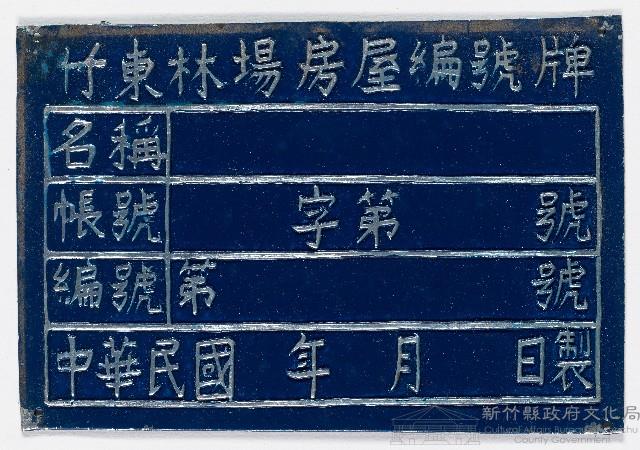 竹東林場房屋編號牌
名稱
帳號 字第 號
編號 第 號
中華民國 年 月 日製
新竹縣政府文化局
Cultural Affairs Bureau, Hsinchu
County Government